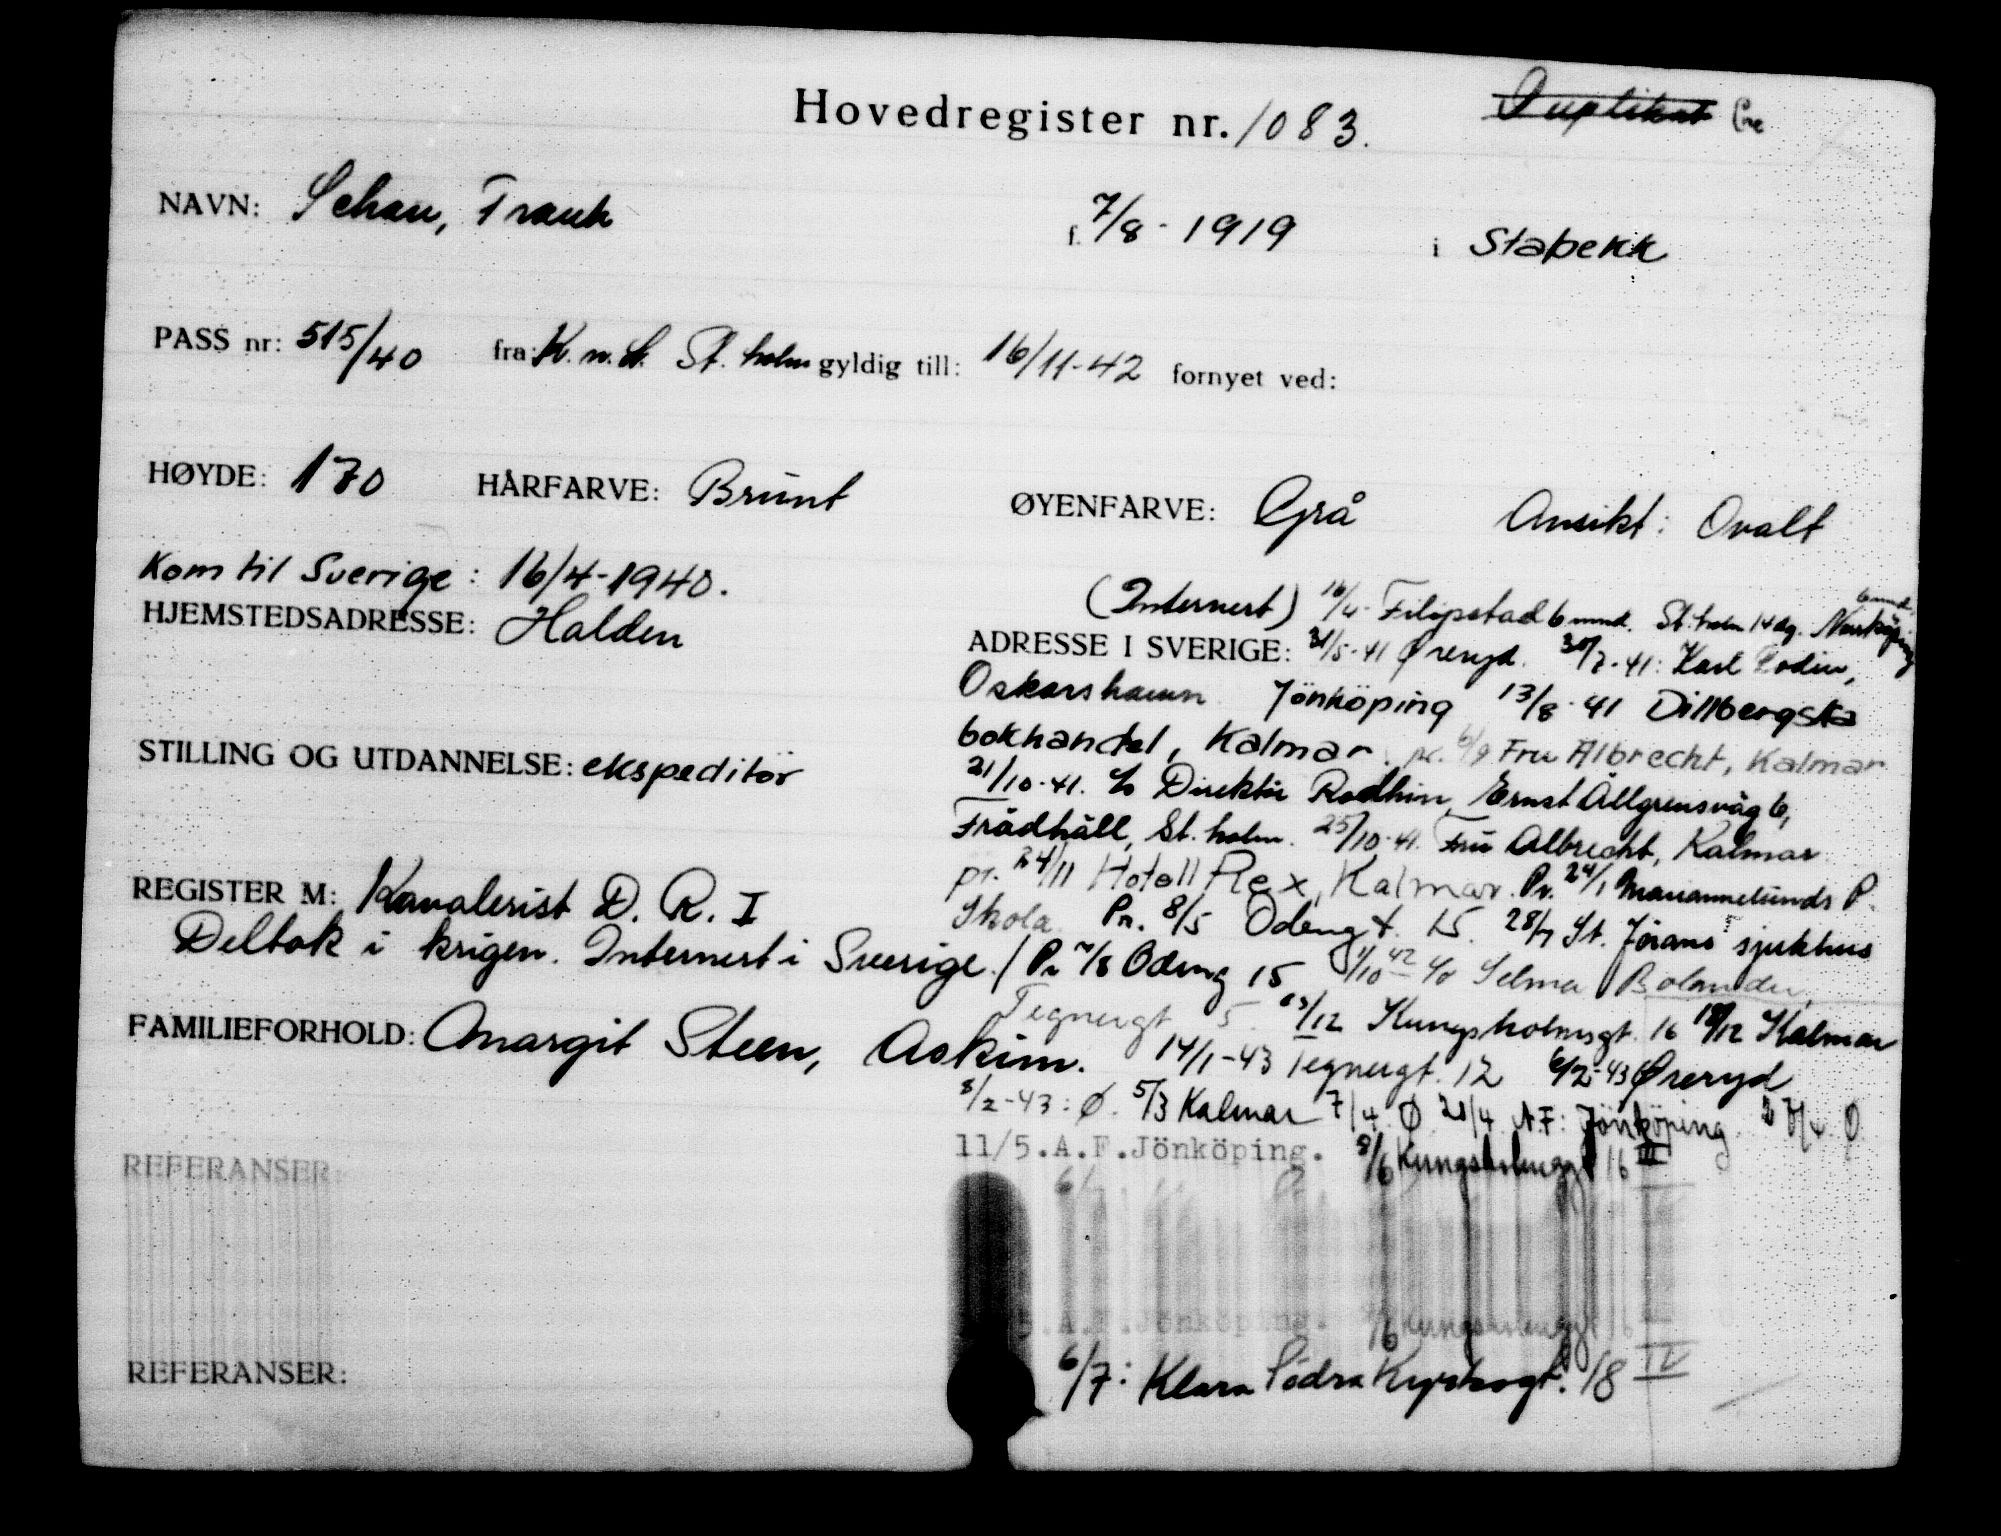 Hovedregister nr. 1083. Duplikat
NAVN: Schau, Frank f. 7/8 - 1919 i Stabekk
PASS nr: 515/40 fra: K. n. L. St. holm gyldig till: 16/11-42 fornyet ved:
HØYDE: 170 HÅRFARVE: Brunt ØYENFARVE: Grå Ansikt: Ovalt
Kom til Sverige: 16/4-1940.
HJEMSTEDSADRESSE: Halden
STILLING OG UTDANNELSE: ekspeditör
REGISTER M: Kavalerist D. R. I
Deltok i krigen. Internert i Sverige.
FAMILIEFORHOLD: Margit Steen, Askim.
(Internert) 16/4- Filipstad 6 mnd. St. holm 14 dg. Norrköping 6 mnd.
ADRESSE I SVERIGE: 31/5-41 Øreryd. 30/7-41: Karl
Oskarshamn Jönköping 13/8-41 Dillbergska
bokhandel, Kalmar. pr. 6/9 Fru Albrecht, Kalmar
21/10-41. c/o Direktör Rodhin, Ernst Ållgrensväg 6,
Frådhäll, St. holm. 25/10-41. Fru Albrecht, Kalmar
pr. 24/11 Hotell Rex, Kalmar. Pr. 24/1 Mariannelunds P.
Skola. Pr. 8/5 Odengt. 15. 28/7 St. Jörans sjukhus
/ Pr 7/8 Odeng 15 1/10 42 c/o Selma Bolander,
Tegnergt 5. 03/12 Kungsholmsgt. 16 18/12 Kalmar
14/1-43 Tegnergt. 12 6/2-43 Øreryd
8/2-43: Ø. 5/3 Kalmar 7/4 Ø 21/4 A.F: Jönköping. Ø
11/5.A.F.Jönköping. 8/6 Kungsholmsgt 16 III
REFERANSER:
5.A.F.Jönköping. 8/6 Kungsholmsgt 16
REFERANSER: 6/7: Klara Södra Kyrkogt. 18 IV